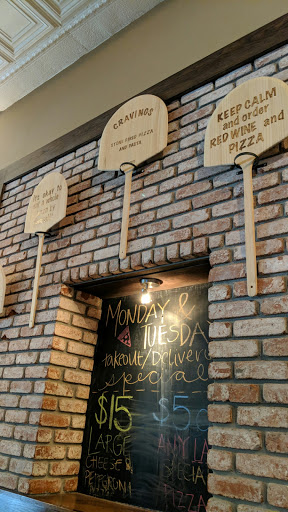 CRAVINGS
STONE FIRED PIZZA
AND PASTA
KEEP CALM
and order
RED WINE and
PIZZA
It's okay to
eat a whole
MONDAY &
TUESDAY
takeout/Delivery
special
$15
LARGE
CHEESE &
PEPPERONI
$5
ANY LA
SPECIAL
PIZZA